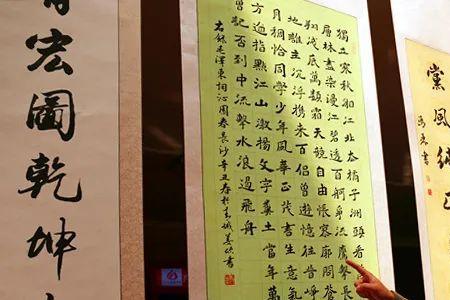 黨風
獨立寒秋湘江北去橘子洲頭看
層林盡染漫江碧透百舸爭流鷹擊長
翔淺底萬類霜天競自由悵寥廓問蒼
地誰主沉浮携來百侶曾遊憶往昔崢
月稠恰同學少年風華正茂書生意氣
方遒指點江山激揚文字糞土當年萬
曾記否到中流擊水浪遏飛舟
右錄毛澤東詞沁園春長沙辛丑春於青城
宏圖乾坤